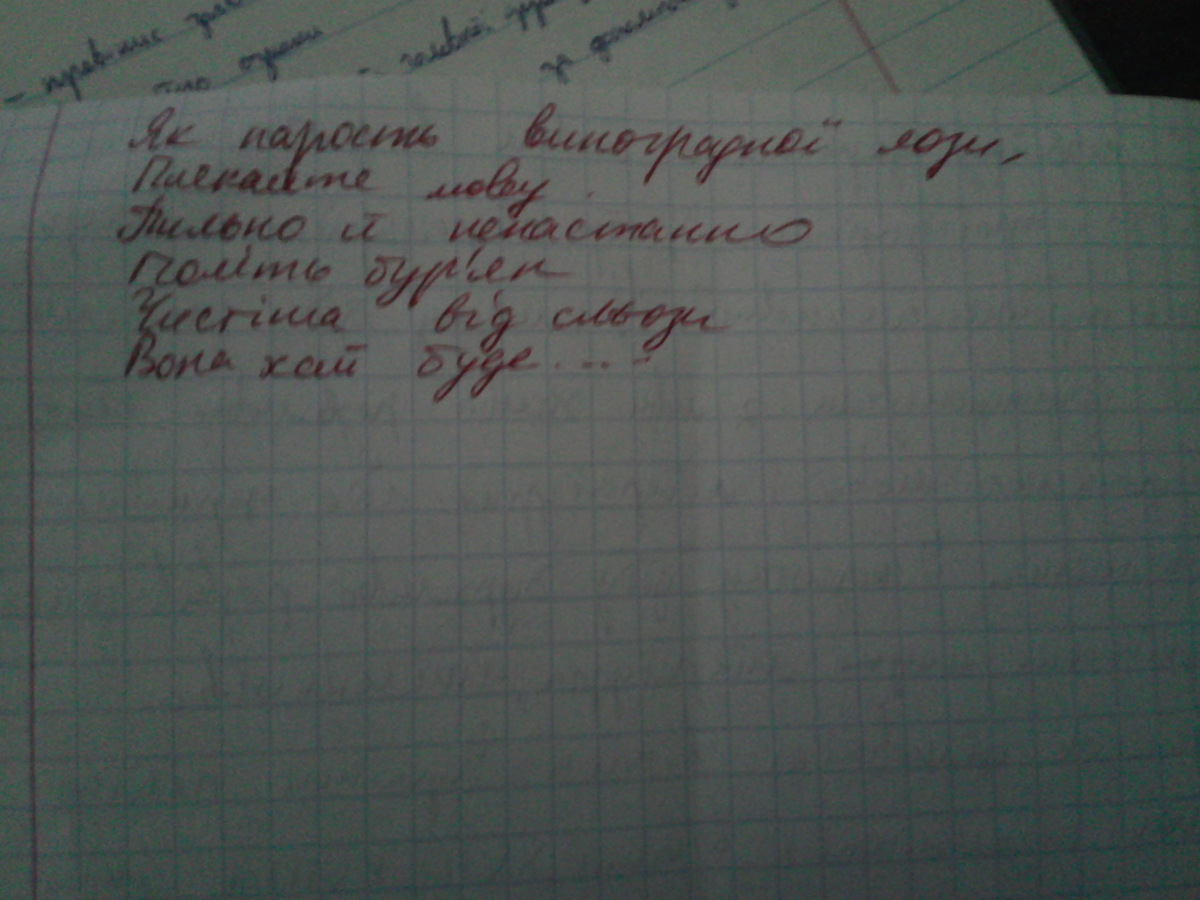 - 
тіло
за
Як парость виноградної лози,
Плекайте мову.
Пильно й ненастанно
Політь бур'ян
Чистіша від сльози
Вона хай буде....